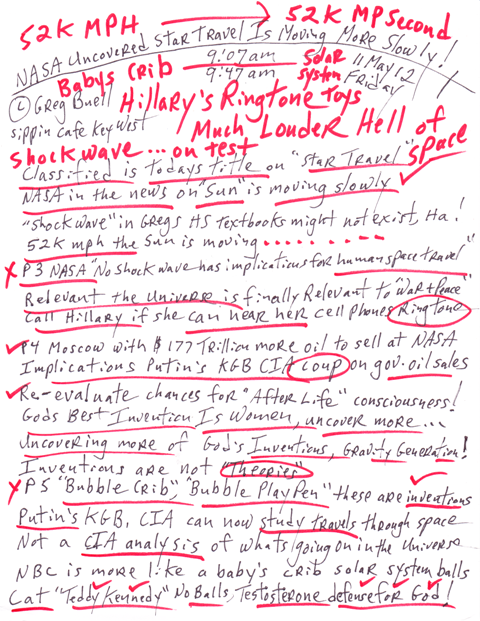 52K MPH → 52K MPSecond
NASA Uncovered Star Travel Is Moving More Slowly!
Babys Crib 9:07am Solar 11 May 12
9:47am System Friday
© Greg Buell Hillary's Ringtone Toys
sippin cafe Key West Much Louder Hell of
shock wave ... on test space
Classified is todays title on "Star Travel"
NASA in the news on "Sun" is moving slowly
"shock wave" in Gregs HS Textbooks might not exist, Ha!
52K mph the Sun is moving ........
X P3 NASA "No shock wave has implications for human space travel"
Relevant the Universe is finally Relevant to "War + Peace"
Call Hillary if she can hear her cell phones Ringtone
P4 Moscow with $177 Trillion more oil to sell at NASA
Implications Putin's KGB CIA coup on gov. oil sales
Re-evaluate chances for "After Life" consciousness!
Gods Best Invention Is Women, uncover more...
Uncovering more of God's Inventions, Gravity Generation!
Inventions are not "Theories"
X P5 "Bubble Crib", "Bubble Play Pen" these are inventions
Putin's KGB, CIA can now study travels through space
Not a CIA analysis of whats going on in the Universe
NBC is more like a baby's crib solar system balls
Cat "Teddy Kennedy" No Balls, Testosterone defense for God!